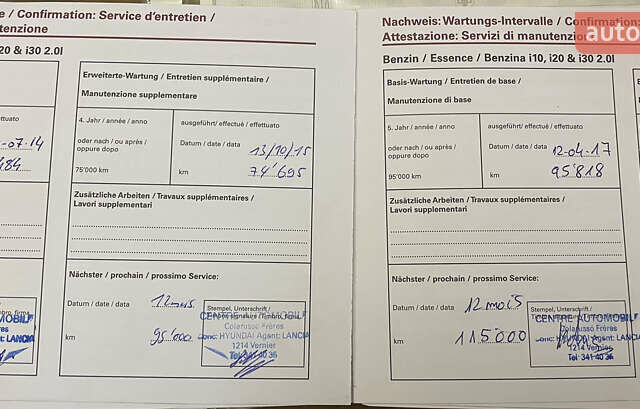 e / Confirmation: Service d'entretien /
tenzione
i20 & i30 2.0l
-07-14
484
Erweiterte-Wartung / Entretien supplémentaire /
Manutenzione supplementare
4. Jahr / année / anno
ausgeführt/ effectué / effettuato
oder nach / ou après /
oppure dopo
Datum / date / data
13/10/15
75'000 km
km
74'695
Zusätzliche Arbeiten / Travaux supplémentaires /
Lavori supplementari
Nächster / prochain / prossimo Service:
Datum / date / data
12 mois
km
95'000
Stempel, Unterschrift /
CENTRE AUTOMOBILE
Colarusso Frères
conc: HYUNDAI Agent: LANCIA
1214 Vernier
Tél 341 40 36
OMOBILE
res
t: LANCIA
Nachweis: Wartungs-Intervalle / Confirmation
Attestazione: Servizi di manutenzion
auto
Benzin / Essence / Benzina i10, i20 & i30 2.0l
Basis-Wartung / Entretien de base /
Manutenzione di base
5. Jahr / année / anno
ausgeführt/ effectué / effettuato
oder nach / ou après /
oppure dopo
Datum / date / data
12-04-17
95'000 km
km
95'818
Zusätzliche Arbeiten / Travaux supplémentaires /
Lavori supplementari
Nächster / prochain / prossimo Service:
Datum / date / data
12 mois
km
115'000
Stempel, Unterschrift /
CENTRE AUTOMOBILE
Colarusso Frères
conc: HYUNDAI Agent: LANCIA
1214 Vernier
Tél 341 40 36